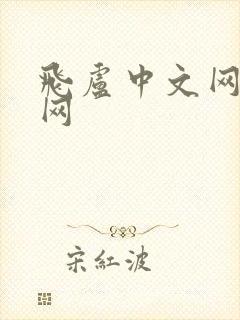 飛盧中文网
网
宋紅波